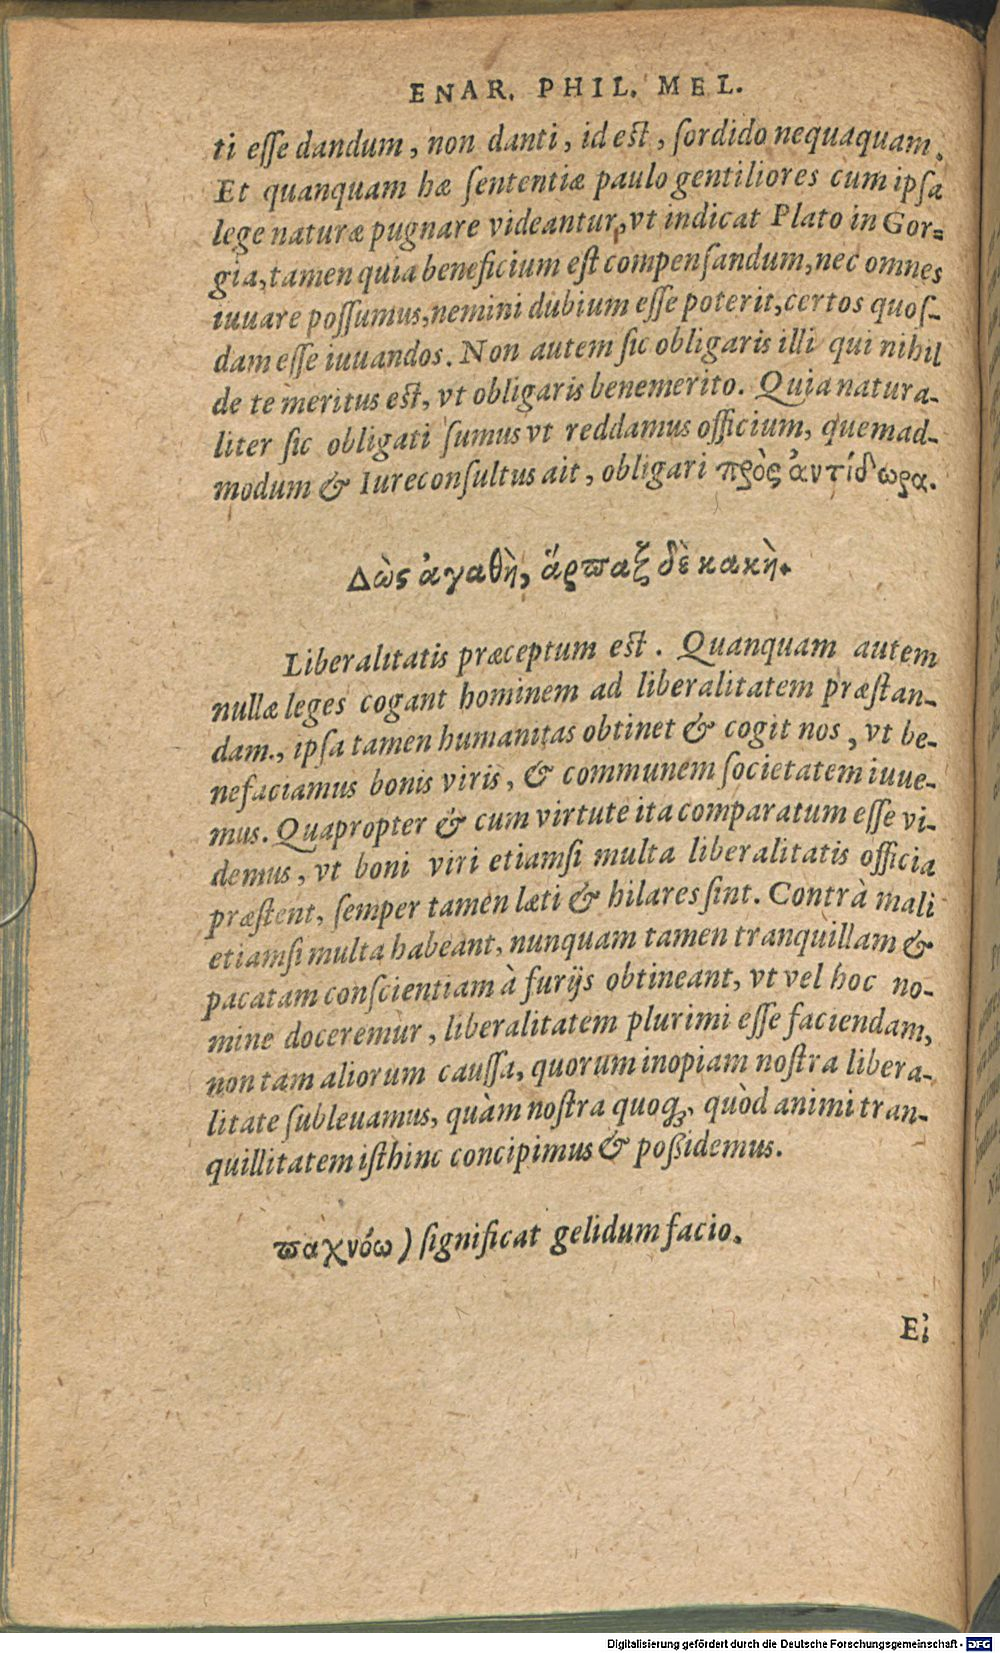 ENAR. PHIL. MEL.
ti eſſe dandum, non danti, id est, ſordido nequaquam.
Et quanquam hæ ſententiæ paulo gentiliores cum ipſa
lege naturæ pugnare videantur, vt indicat Plato in Gor=
gia, tamen quia beneficium eſt compenſandum, nec omnes
iuuare poſſumus, nemini dubium eſſe poterit, certos quoſ-
dam eſſe iuuandos. Non autem ſic obligaris illi qui nihil
de te meritus est, vt obligaris benemerito. Quia natura-
liter ſic obligati ſumus vt reddamus officium, quemad-
modum & Iureconſultus ait, obligari πρὸς ἀντίδωρα.
Δὼς ἀγαθὴ, ἅρπαξ δὲ κακὴ.
Liberalitatis præceptum est. Quanquam autem
nullæ leges cogant hominem ad liberalitatem præſtan-
dam., ipſa tamen humanitas obtinet & cogit nos, vt be-
nefaciamus bonis viris, & communem ſocietatem iuue-
mus. Quapropter & cum virtute ita comparatum eſſe vi-
demus, vt boni viri etiamſi multa liberalitatis officia
præſtent, ſemper tamen læti & hilares ſint. Contrà mali
etiamſi multa habeant, nunquam tamen tranquillam &
pacatam conſcientiam à furijs obtineant, vt vel hoc no-
mine doceremur, liberalitatem plurimi eſſe faciendam,
non tam aliorum cauſſa, quorum inopiam noſtra libera-
litate ſubleuamus, quàm noſtra quoq;, quòd animi tran-
quillitatem iſthinc concipimus & poßidemus.
παχνόω) ſignificat gelidum facio.
Εἰ
Digitalisierung gefördert durch die Deutsche Forschungsgemeinschaft - DFG